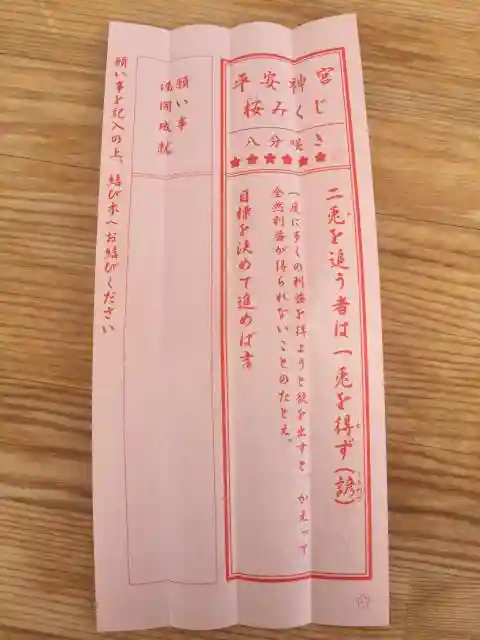 平安神宮
桜みくじ
八分咲き
二兎を追う者は一兎を得ず(諺)
一度に多くの利益を得ようと欲を出すと かえって
全然利益が得られないことのたとえ。
目標を決めて進めば吉
願い事
満開成就
願い事を記入の上、結び木へお結びください